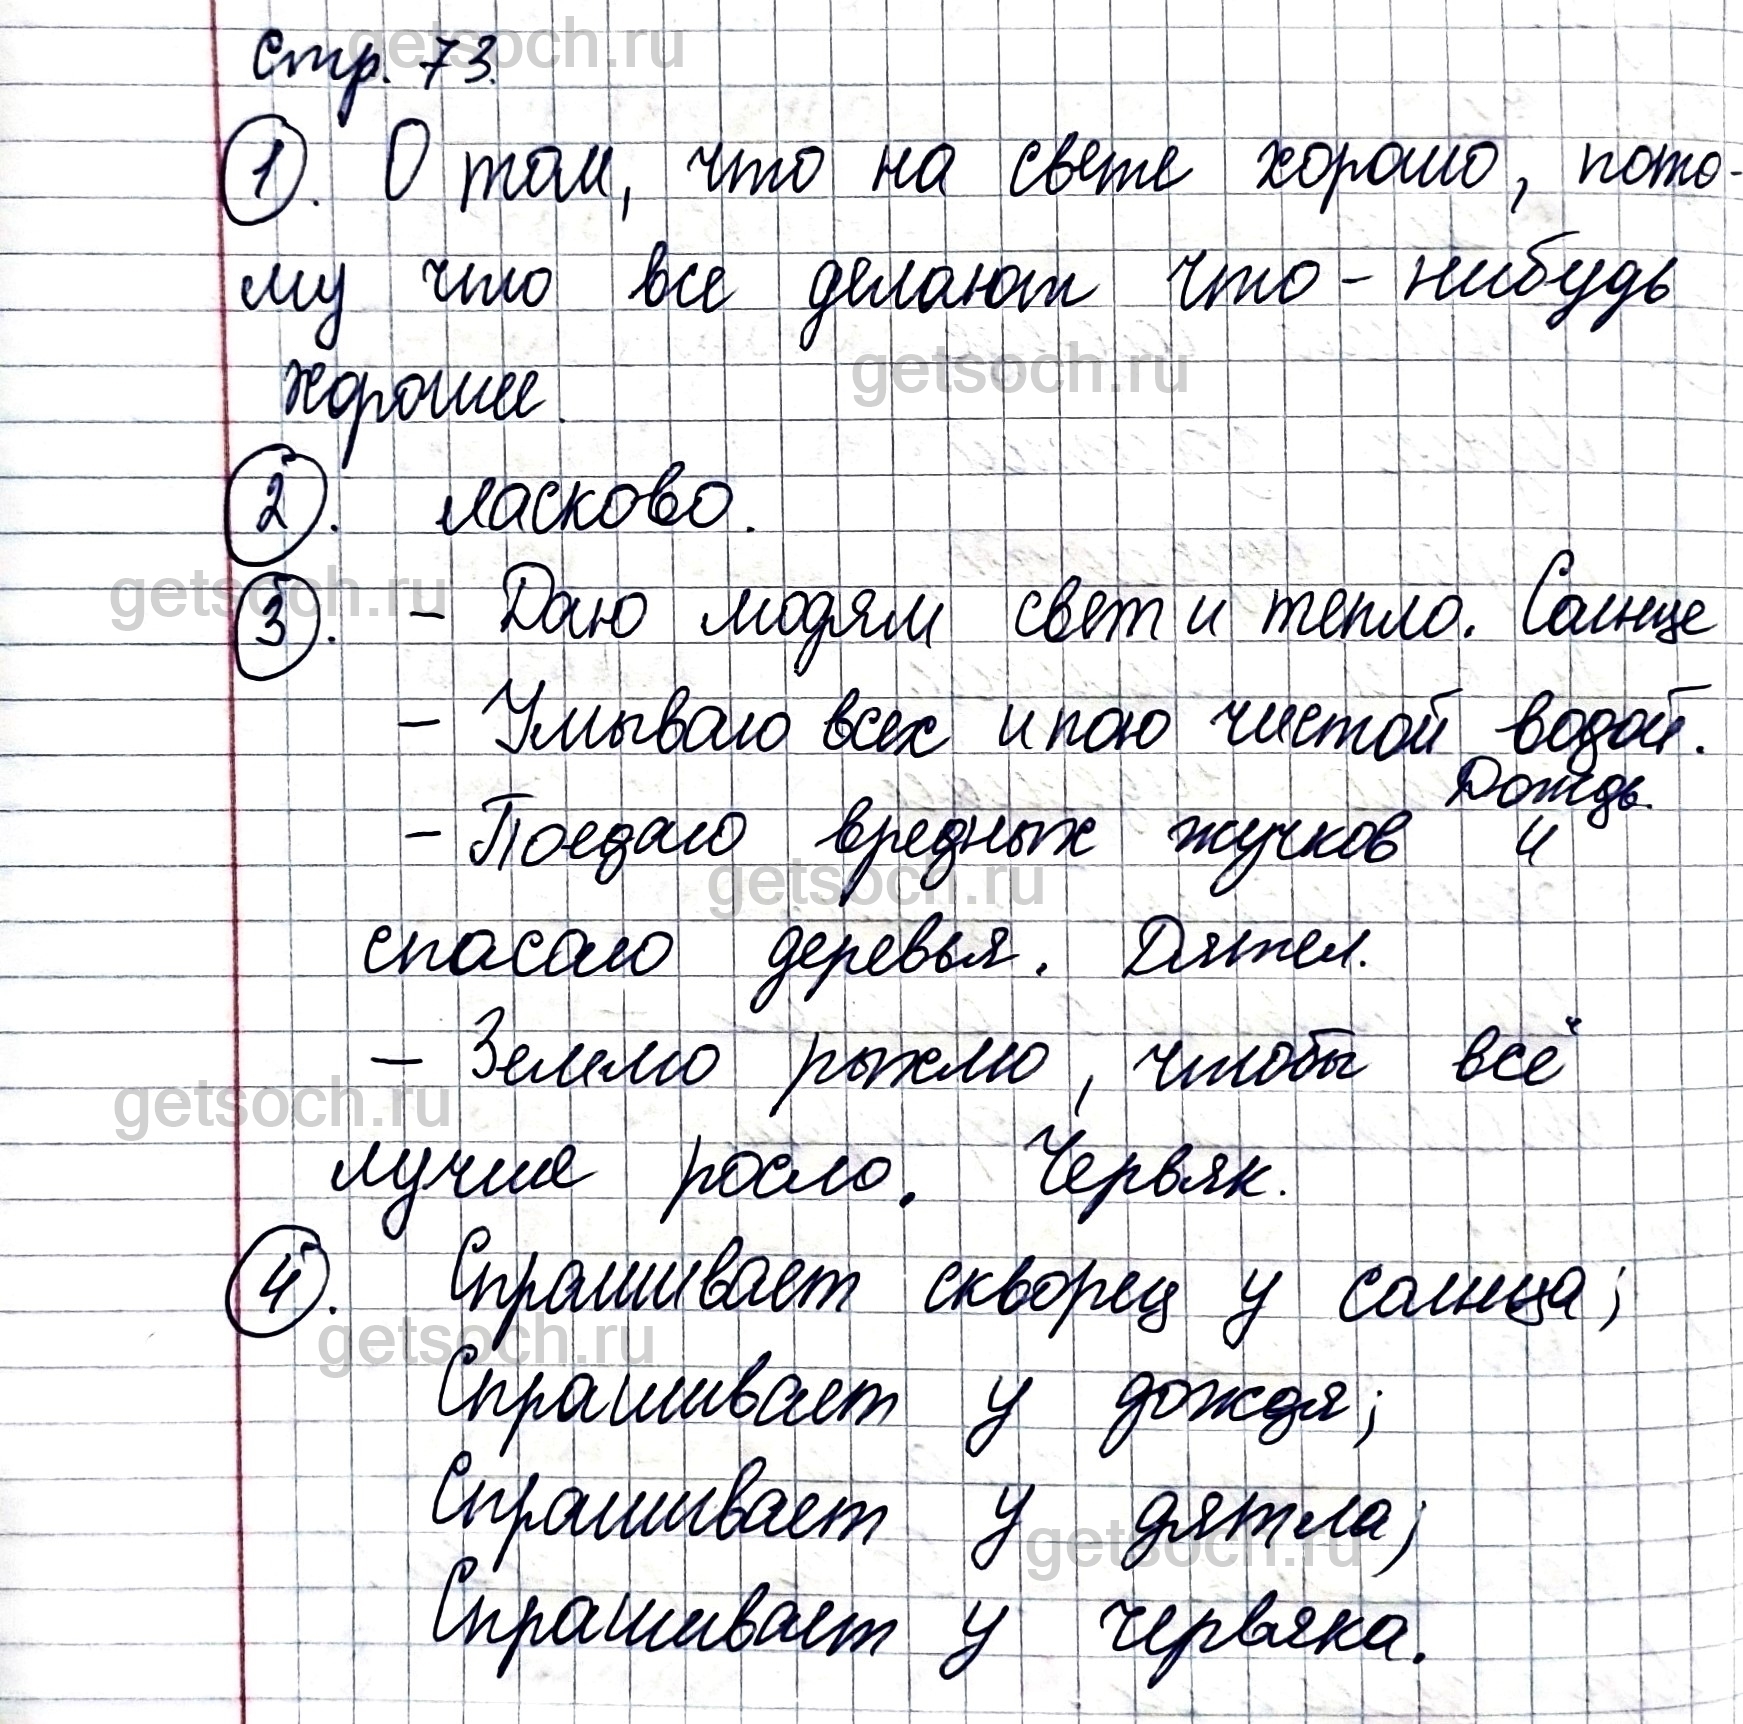 Стр. 73.
1. О том, что на свете хорошо, пото-
му что все делают что-нибудь
хорошее.
2. ласково.
3. – Даю людям свет и тепло. Солнце
– Умываю всех и пою чистой водой.
Дождь.
– Поедаю вредных жучков и
спасаю деревья. Дятел.
– Землю рыхлю, чтобы всё
лучше росло. Червяк.
4. Спрашивает скворец у солнца;
Спрашивает у дождя;
Спрашивает у дятла;
Спрашивает у червяка.
getsoch.ru
getsoch.ru
getsoch.ru
getsoch.ru
getsoch.ru
getsoch.ru
getsoch.ru